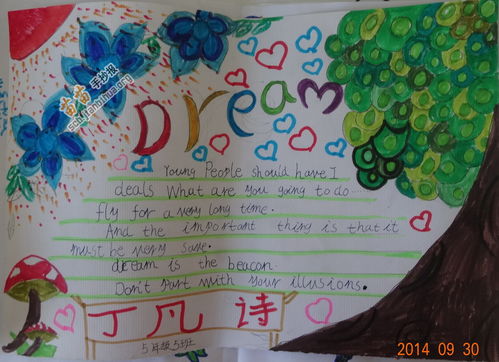 Dream
Young People should have I
deals What are you going to do...
fly for a very long time.
And the important thing is that it
must be very save.
dream is the beacon.
Don't part with your illusions.
丁凡诗
5年级5班
2014 09 30